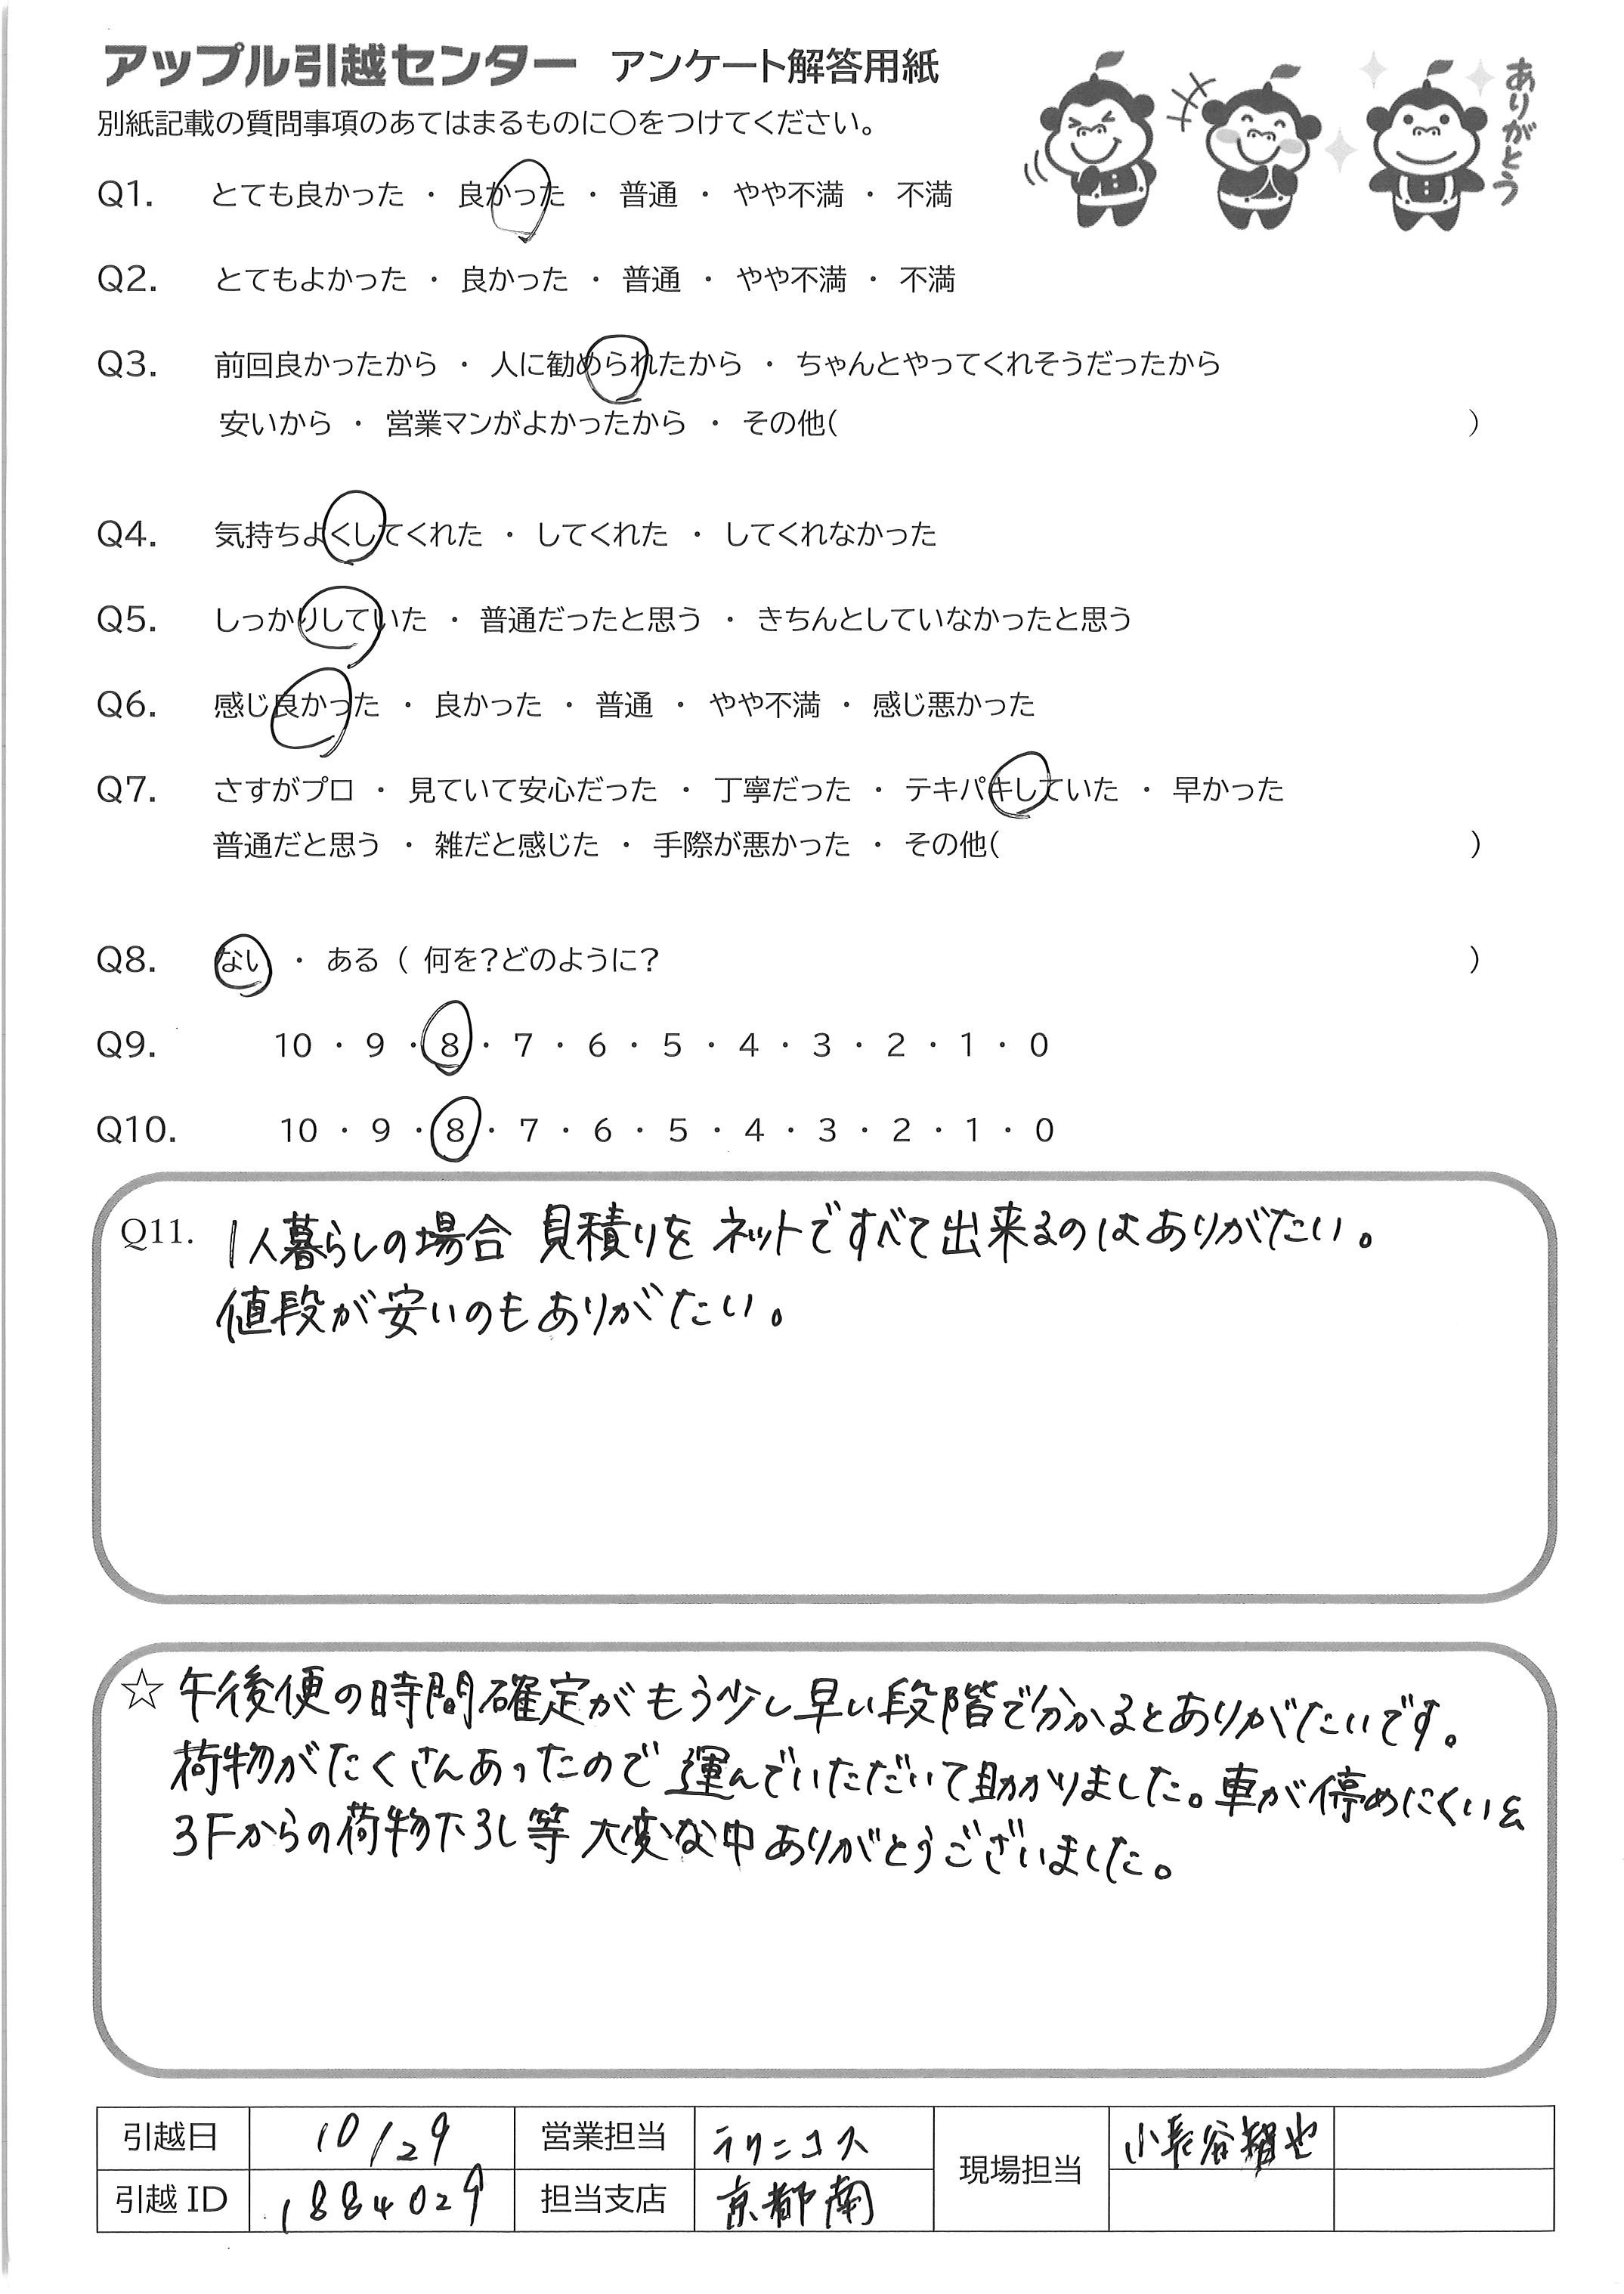 アップル引越センター アンケート解答用紙
ありがとう
別紙記載の質問事項のあてはまるものに○をつけてください。
Q1. とても良かった ・ 良かった ・ 普通 ・ やや不満 ・ 不満
Q2. とてもよかった ・ 良かった ・ 普通 ・ やや不満 ・ 不満
Q3. 前回良かったから ・ 人に勧められたから ・ ちゃんとやってくれそうだったから
安いから ・ 営業マンがよかったから ・ その他( )
Q4. 気持ちよくしてくれた ・ してくれた ・ してくれなかった
Q5. しっかりしていた ・ 普通だったと思う ・ きちんとしていなかったと思う
Q6. 感じ良かった ・ 良かった ・ 普通 ・ やや不満 ・ 感じ悪かった
Q7. さすがプロ ・ 見ていて安心だった ・ 丁寧だった ・ テキパキしていた ・ 早かった
普通だと思う ・ 雑だと感じた ・ 手際が悪かった ・ その他( )
Q8. ない ・ ある ( 何を?どのように? )
Q9. 10 ・ 9 ・ 8 ・ 7 ・ 6 ・ 5 ・ 4 ・ 3 ・ 2 ・ 1 ・ 0
Q10. 10 ・ 9 ・ 8 ・ 7 ・ 6 ・ 5 ・ 4 ・ 3 ・ 2 ・ 1 ・ 0
Q11. 1人暮らしの場合 見積りを ネットですべて出来るのはありがたい。
値段が安いのもありがたい。
☆ 午後便の時間確定がもう少し早い段階で分かるとありがたいです。
荷物がたくさんあったので 運んでいただいて助かりました。車が停めにくい&
3Fからの荷物下ろし等 大変な中ありがとうございました。
引越日 10/29 営業担当 ラクニコス 現場担当 小長谷 也
引越 ID 1884029 担当支店 京都南